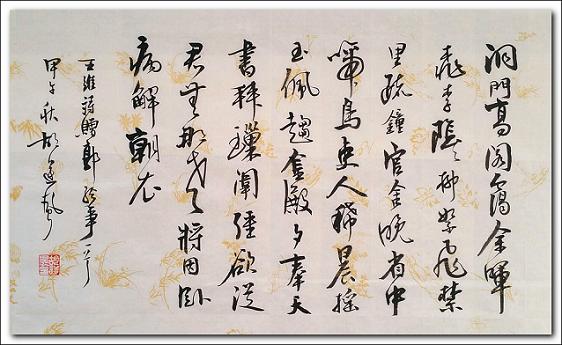 洞門高阁靄余暉
桃李陰々柳絮飛禁
里疏鐘官舍晚省中
啼鳥吏人稀晨摇
玉佩趨金殿夕奉天
書拜璅闈强欲從
君無那老將因卧
病解朝衣
王維詩贈郭給事一首
甲午秋